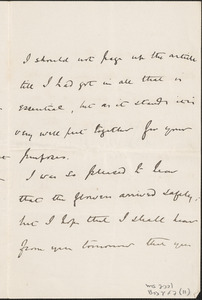 I should not page up the article
till I had got in all that is
essential, but as it stands it is
very well put together for your
purposes.
I was so pleased to hear
that the flowers arrived safely,
but I hope that I shall hear
from you tomorrow that you